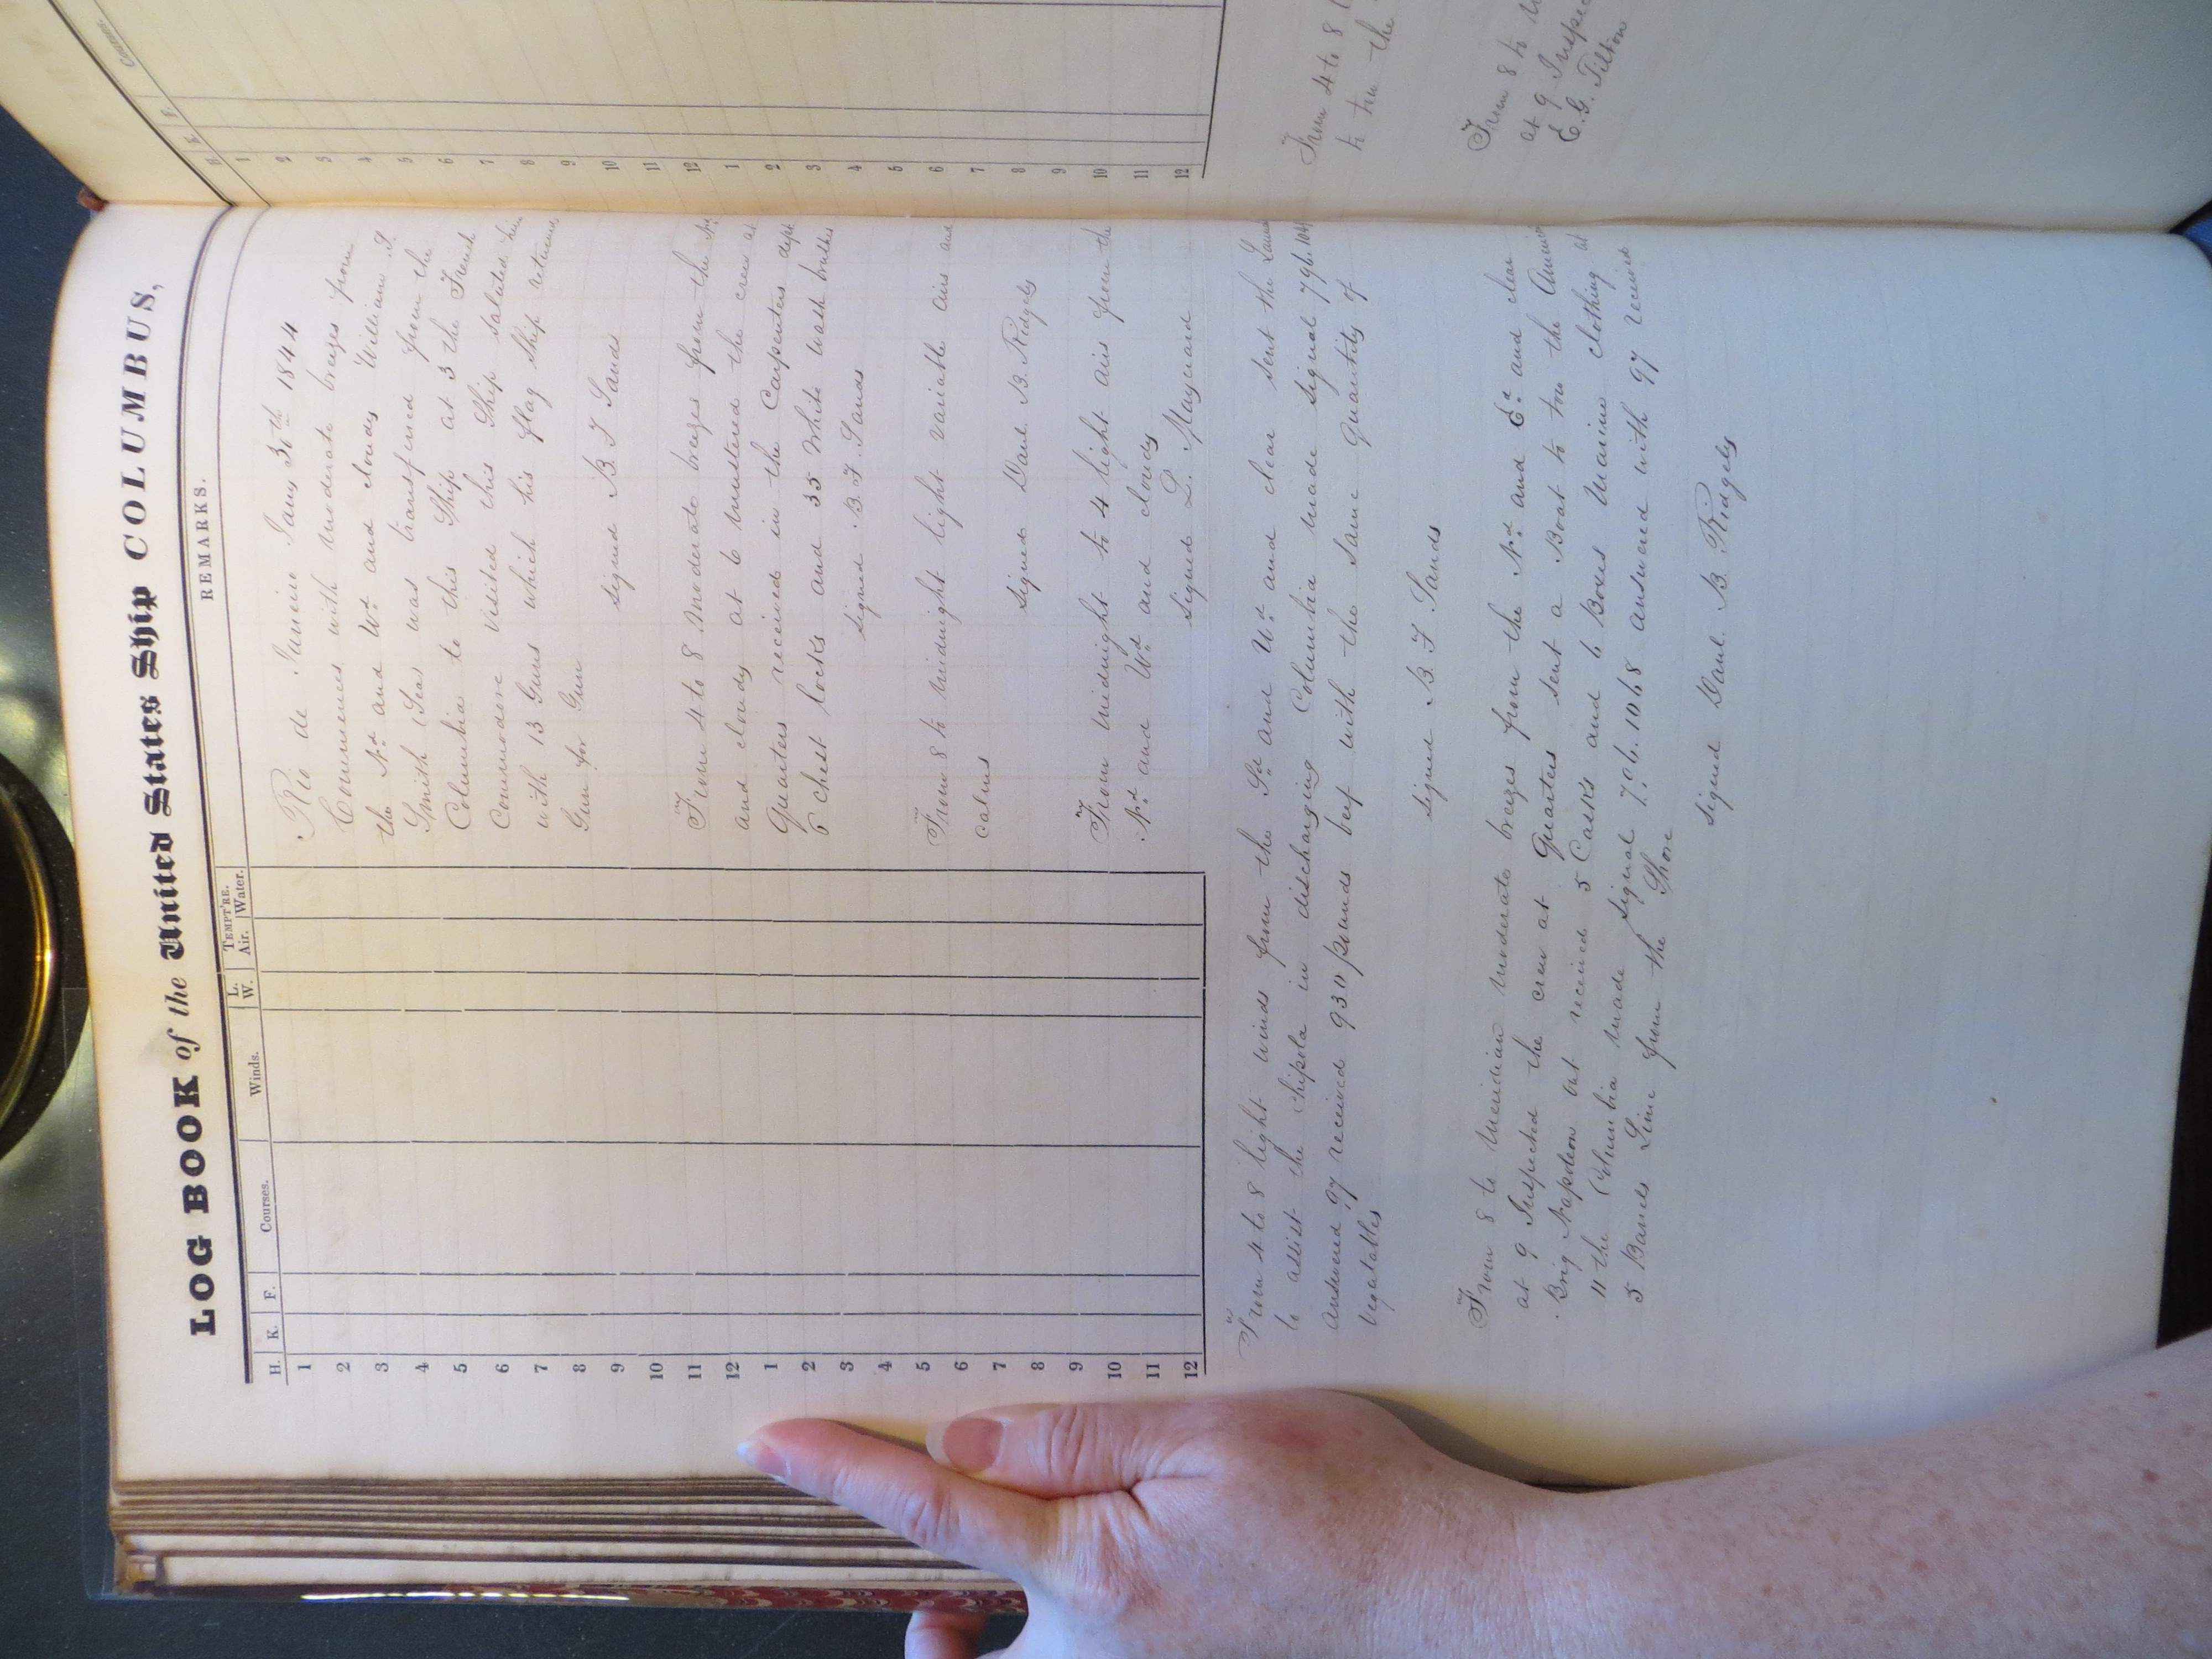 LOG BOOK of the United States Ship COLUMBUS,
H. K. F. Courses. Winds. L. W. TEMPT'RE. Air. Water. REMARKS.
1
2
3
4
5
6
7
8
9
10
11
12
1
2
3
4
5
6
7
8
9
10
11
12
Rio de Janeiro Jany 30th 1844
Commences with moderate breezes from
the Nd and Wd and cloudy William S.
Smith (Sea was transferred from the
Columbia to this Ship at 3 the French
Commodore visited this Ship saluted him
with 13 Guns which his flag Ship returned
Gun for Gun
Signed B. F. Sands
From 4 to 8 Moderate breezes from the
and cloudy at 6 mustered the crew at
Quarters received in the Carpenters dept
6 chest locks and 35 White wash brushes
Signed B. F. Sands
From 8 to Midnight light variable airs and
calms
Signed Danl. B. Ridgely
From Midnight to 4 light airs from the
Nd and Wd and cloudy
Signed L. Maynard
From 4 to 8 light winds from the Sd and Wd and clear sent the
to assist the Chipola in discharging Columbia made Signal 796.
answered 97 received 930 pounds beef with the same Quantity of
vegatables
Signed B. F. Sands
From 8 to Meridian Moderate breezes from the Nd and Ed and clear
at 9 Inspected the crew at Quarters sent a Boat to tow the
Brig Napoleon out received 5 Casks and 6 Boxes Marine clothing at
11 the Columbia made Signal 796.1068 answered with 97 received
5 Barrels Lime from the Shore
Signed Danl. B. Ridgely
H. K. F. Courses.
1
2
3
4
5
6
7
8
9
10
11
12
1
2
3
4
5
6
7
8
9
10
11
12
From 4 to 8
to tow the
From 8 to
at 9 Inspec
E.G. Tilton